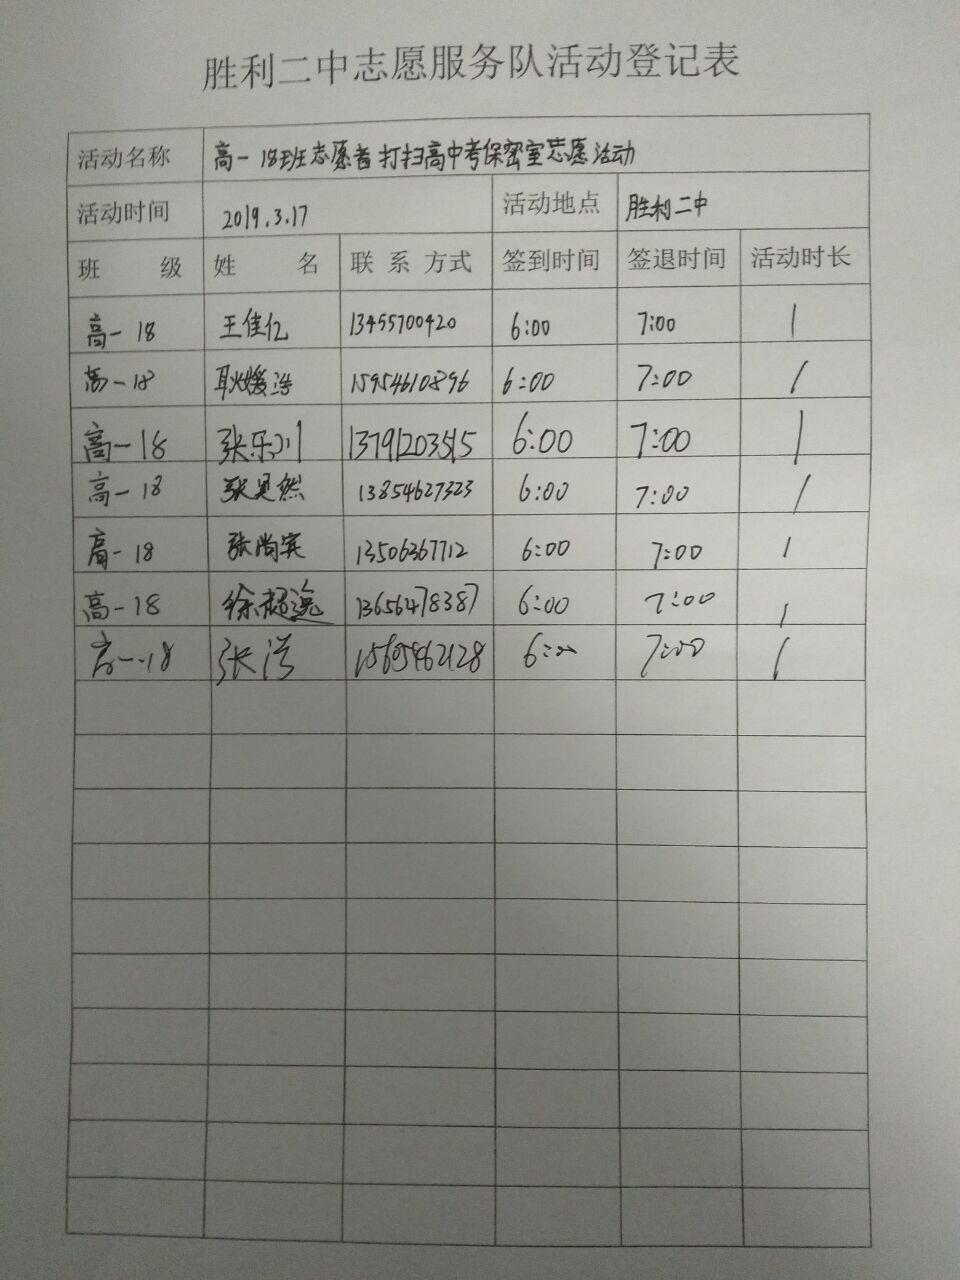 胜利二中志愿服务队活动登记表
活动名称 高一18班志愿者打扫高中考保密室志愿活动
活动时间 2019.3.17 活动地点 胜利二中
班 级 姓 名 联系方式 签到时间 签退时间 活动时长
高一18 王佳亿 13455700420 6:00 7:00 1
高一18 耿媛浩 15954610896 6:00 7:00 1
高一18 张乐川 13791203515 6:00 7:00 1
高一18 张昊然 13854627323 6:00 7:00 1
高一18 张尚宾 13506367712 6:00 7:00 1
高一18 徐超逸 13656478387 6:00 7:00 1
高一18 张 15695462128 6:00 7:00 1